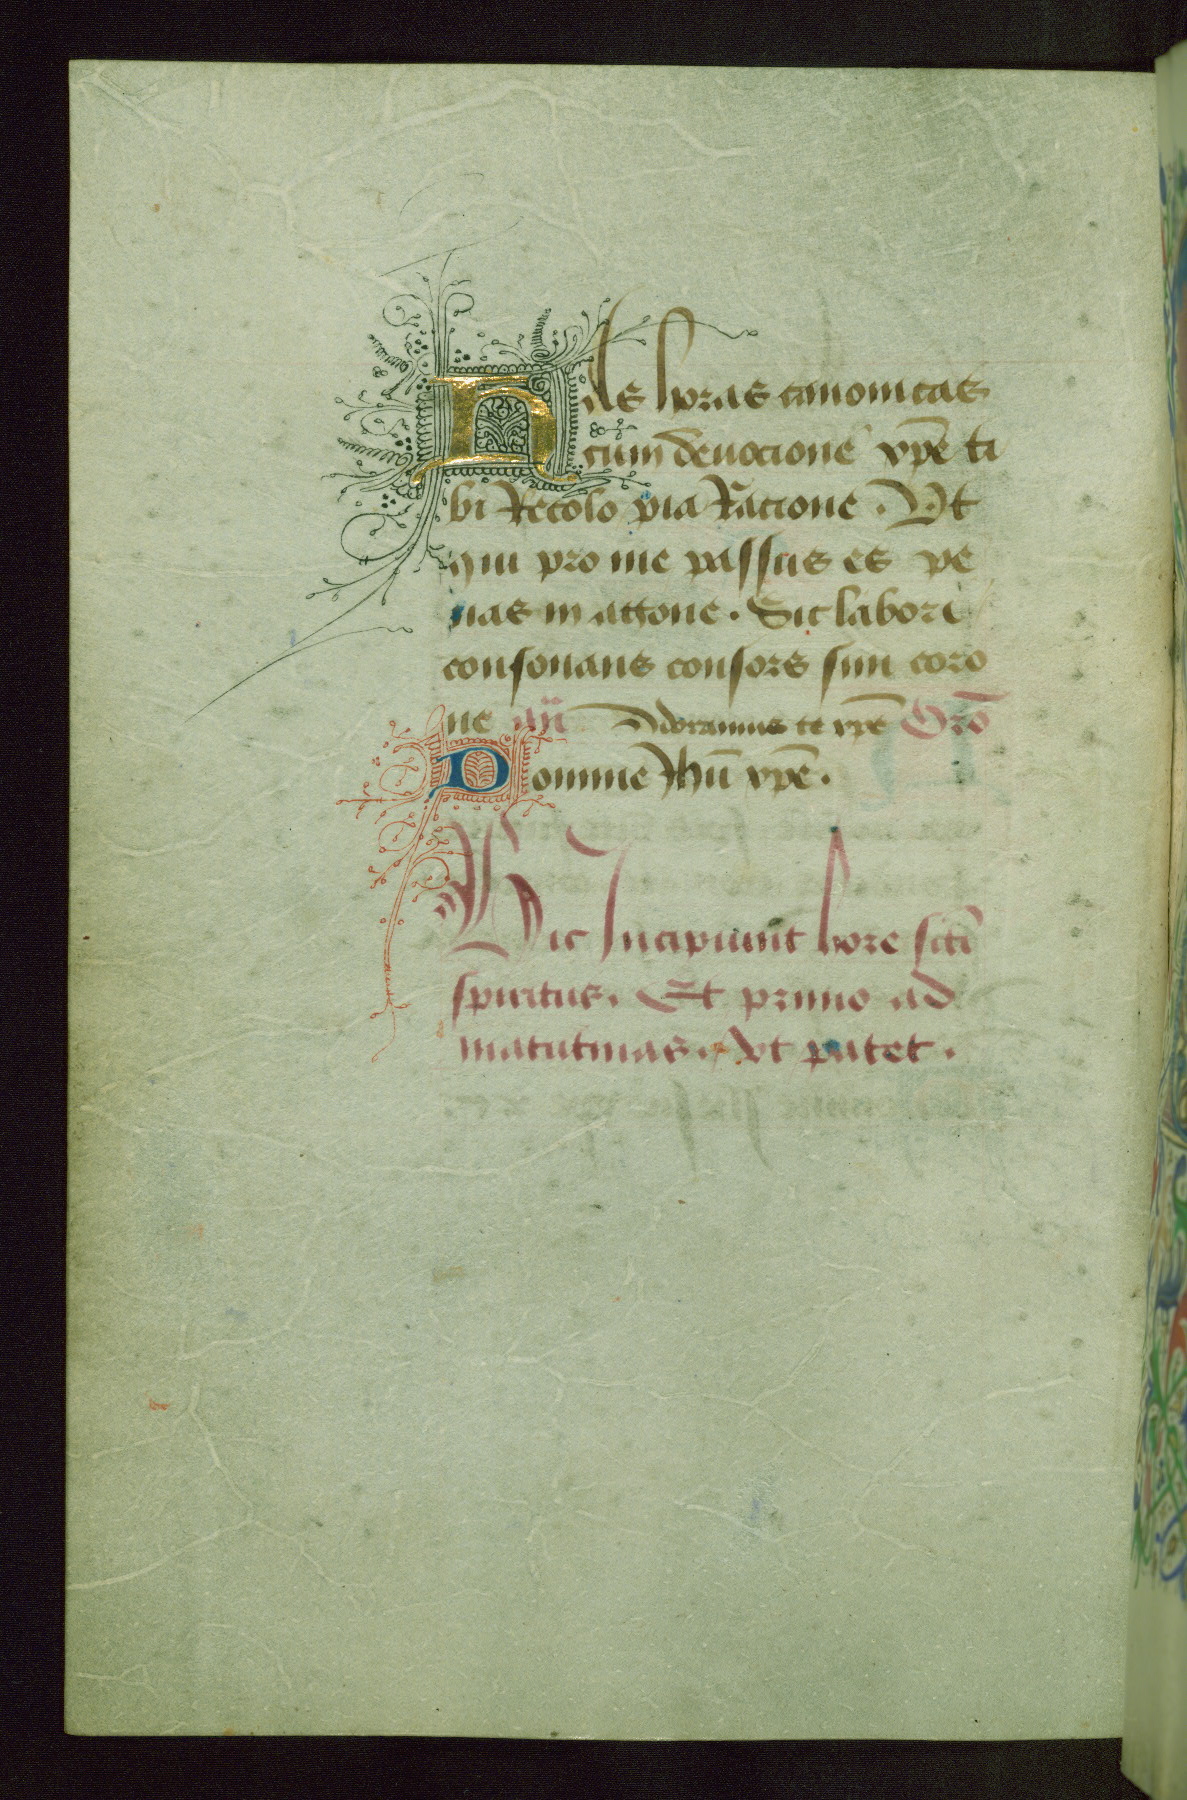 Has horas canonicas
cum deuocione xp̄e ti
bi Recolo pia Racione . Vt
qui pro me passus es pe
nas in agone . Sic labori
consonans consors sim coro
ne Adoramus te xp̄e Orō
Domine Ihū xp̄e .
Hic Incipiunt hore scti
spiritus . Et primo ad
matutinas . Vt patet .